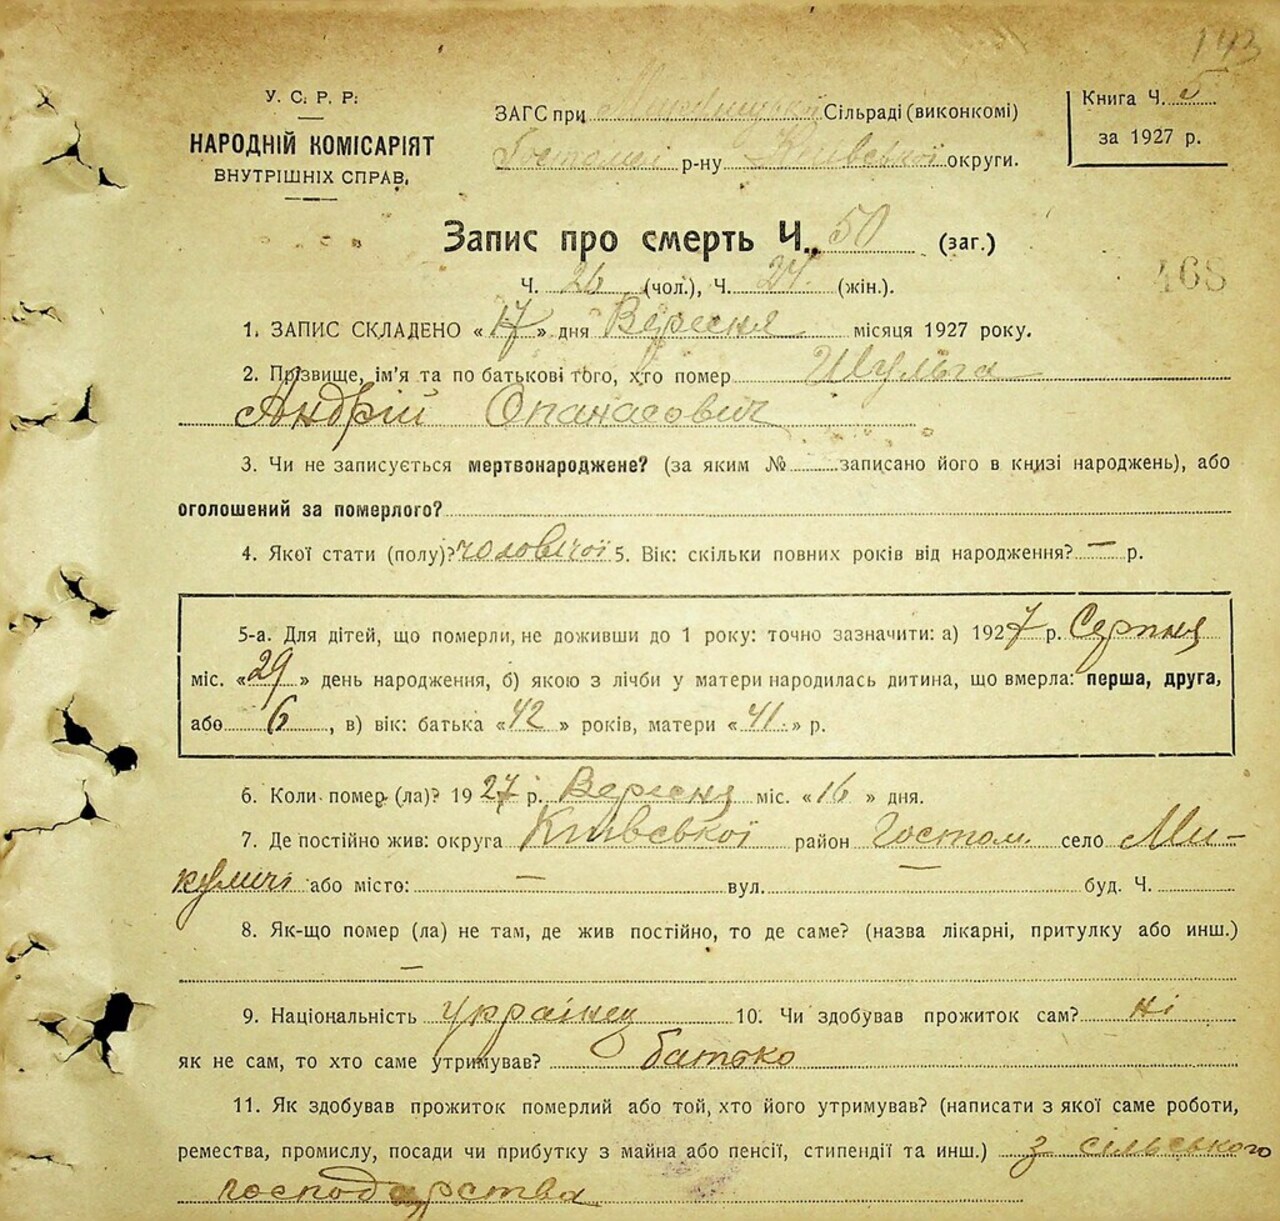 143
У. С. Р. Р.
НАРОДНІЙ КОМІСАРІЯТ
ВНУТРІШНІХ СПРАВ.
ЗАГС при Микулицькій Сільраді (виконкомі)
Гостомел р-ну Київської округи.
Книга Ч. 5
за 1927 р.
Запис про смерть Ч. 50 (заг.)
Ч. 26 (чол.), Ч. 24 (жін.).
468
1. ЗАПИС СКЛАДЕНО «17» дня Вересня місяця 1927 року.
2. Прізвище, ім'я та по батькові того, хто помер Шульга
Андрій Опанасович
3. Чи не записується мертвонароджене? (за яким № записано його в книзі народжень), або
оголошений за померлого?
4. Якої стати (полу)? чоловічої 5. Вік: скільки повних років від народження? — р.
5-а. Для дітей, що померли, не доживши до 1 року: точно зазначити: а) 1927 р. Серпня
міс. «29» день народження, б) якою з лічби у матери народилась дитина, що вмерла: перша, друга,
або 6, в) вік: батька «42» років, матери «41» р.
6. Коли помер (ла)? 1927 р. Вересня міс. «16» дня.
7. Де постійно жив: округа Київської район Гостом. село Ми-
куличі або місто: — вул. — буд. Ч.
8. Як-що помер (ла) не там, де жив постійно, то де саме? (назва лікарні, притулку або инш.)
—
9. Національність українец 10. Чи здобував прожиток сам? ні
як не сам, то хто саме утримував? батько
11. Як здобував прожиток померлий або той, хто його утримував? (написати з якої саме роботи,
ремества, промислу, посади чи прибутку з майна або пенсії, стипендії та инш.) з сільського
господарства